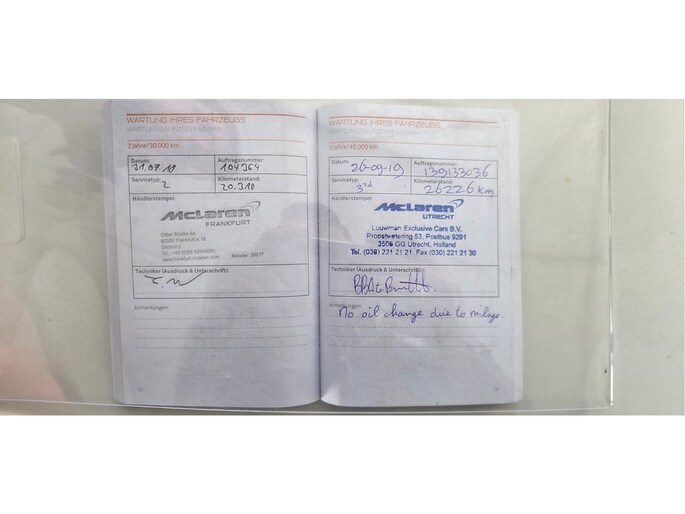 WARTUNG IHRES FAHRZEUGS
2 Jahre/30.000 km
Datum:
31.07.18
Auftragsnummer:
104364
Servicetyp:
2
Kilometerstand:
20.310
Händlerstempel:
McLaren
FRANKFURT
Germany
Techniker (Ausdruck & Unterschrift):
Anmerkungen:
WARTUNG IHRES FAHRZEUGS
3 Jahre/45.000 km
Datum:
26-09-19
Auftragsnummer:
139133036
Servicetyp:
3rd
Kilometerstand:
26226 km
Händlerstempel:
McLaren
UTRECHT
Louwman Exclusive Cars B.V.
Proostwetering 53, Postbus 9291
3506 GG Utrecht, Holland
Tel. (030) 221 21 21 Fax (030) 221 21 30
Techniker (Ausdruck & Unterschrift):
Anmerkungen:
No oil change due to milage.